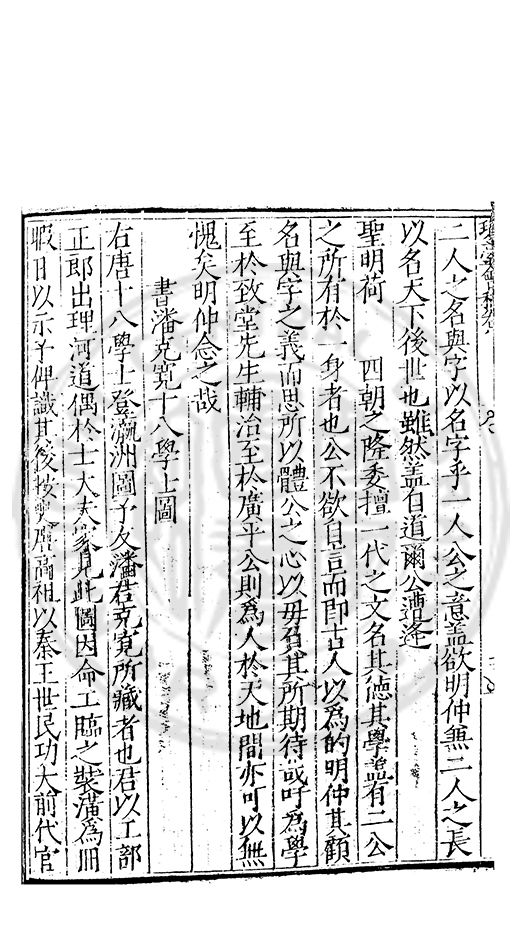 二人之名與字以名字乎一人公之意盖欲明仲無二人之長
以名天下後世也雖然盖有道爾公遭逢
聖明荷　四朝之隆委擅一代之文名其德其學盖有二公
之所有於一身者也公不欲自言而即古人以為的明仲其顧
名與字之義而思所以體公之心以毋負其所期待或吁為學
至於致堂先生輔治至於廣平公則為人於天地間亦可以無
愧矣明仲念之哉
書潘克寬十八學士圖
右唐十八學士登瀛洲圖予友潘君克寬所藏者也君以工部
正郎出理河道偶於士大夫家見此圖因命工臨之裝潢為冊
暇日以示予俾識其後按史唐高祖以秦王世民功大前代官